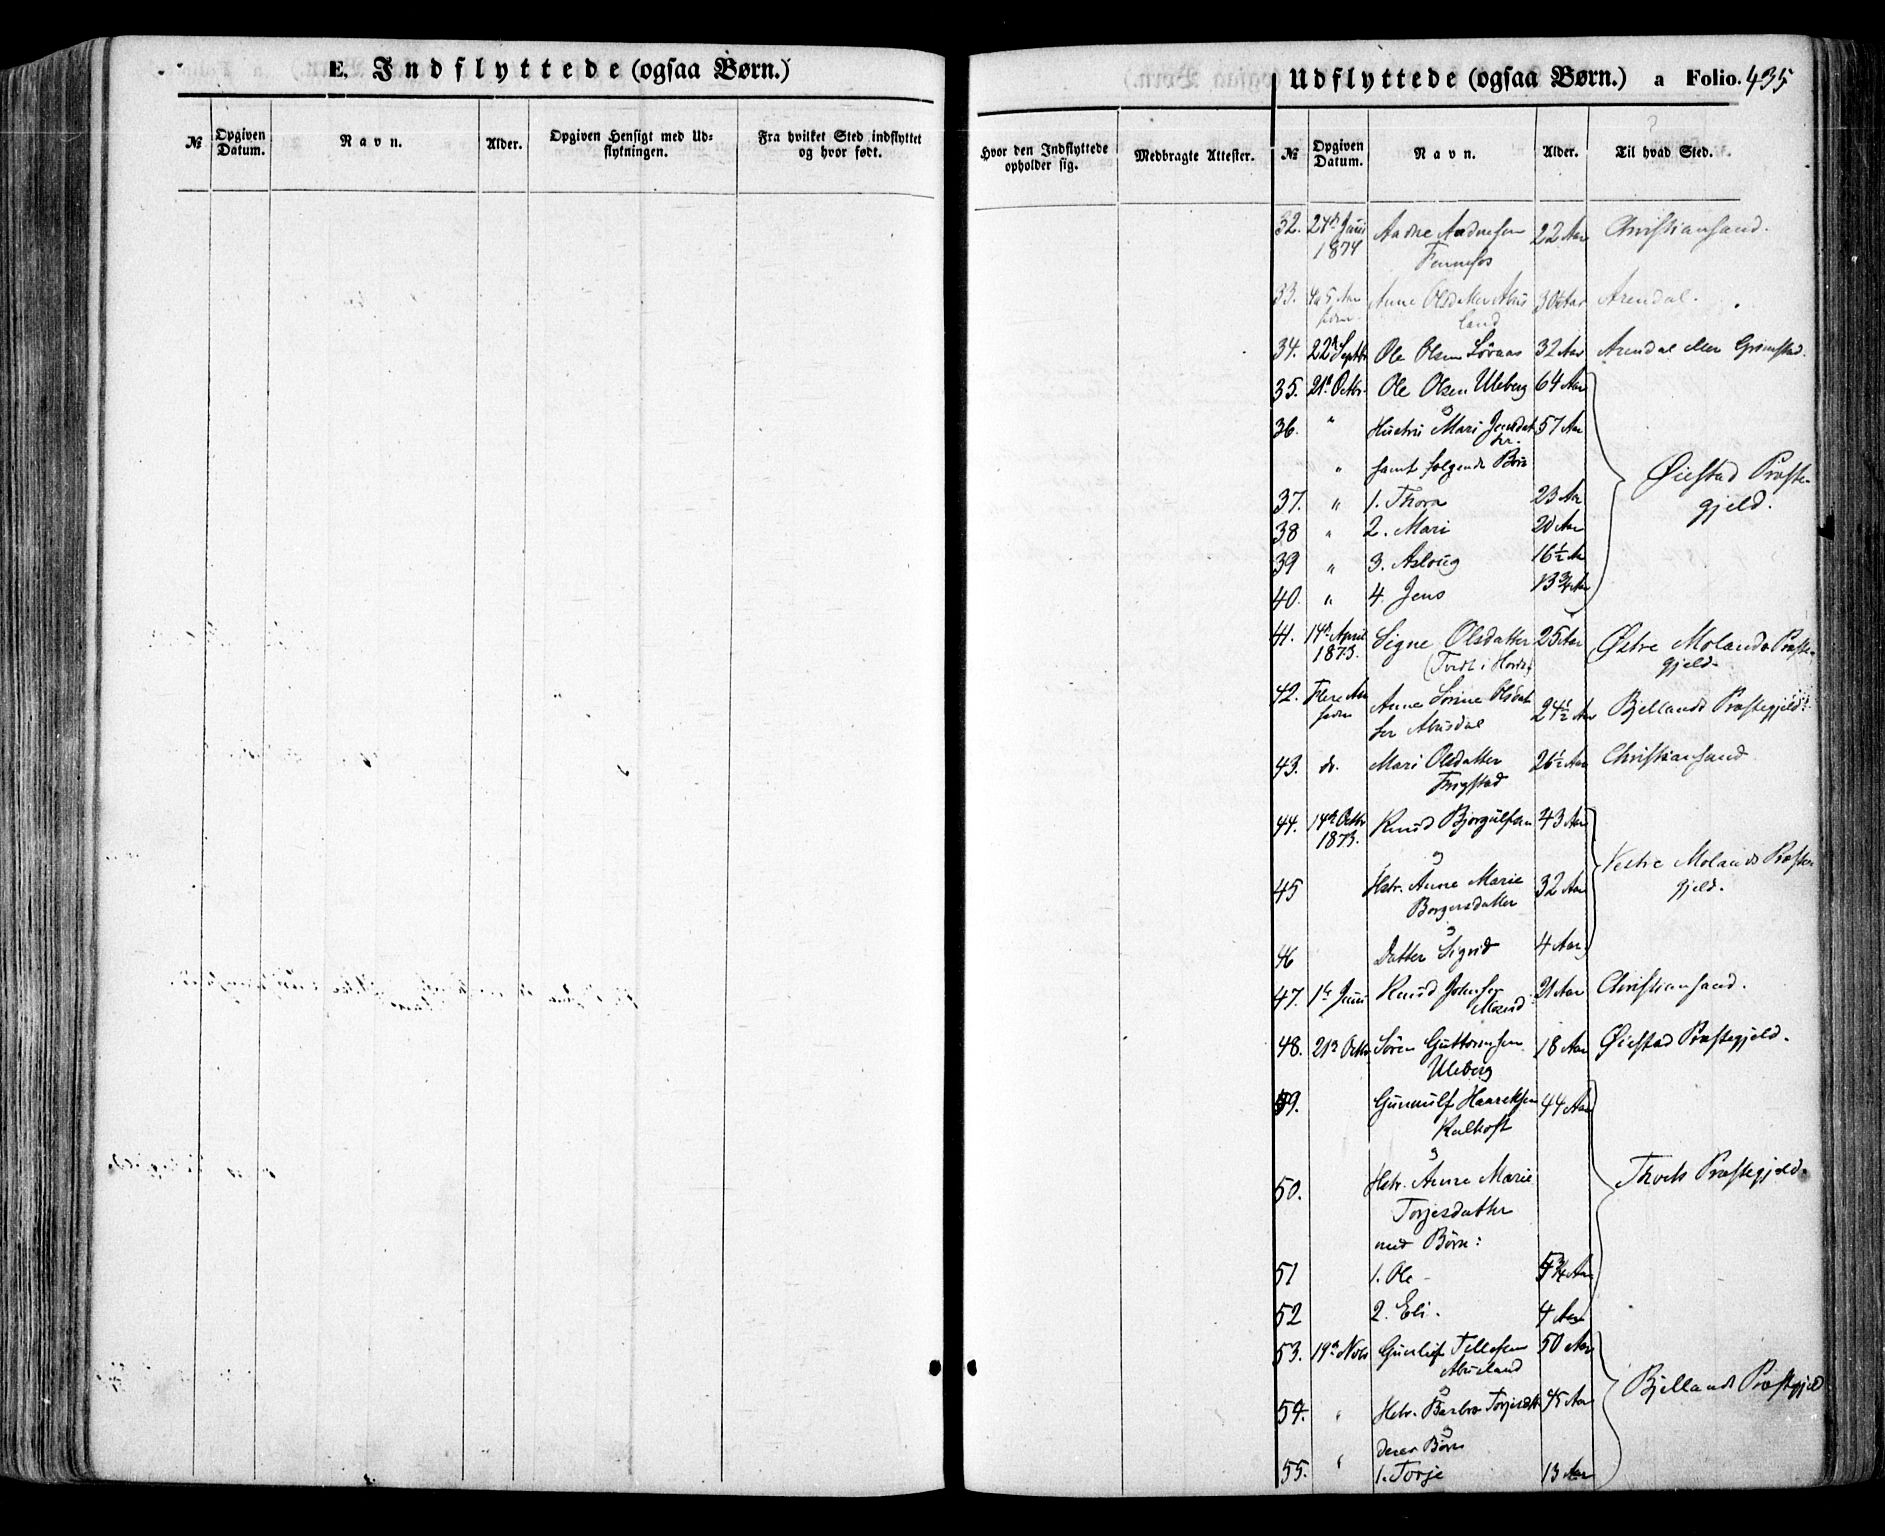 E. Indflyttede (ogsaa Børn.)
№
Opgiven Datum.
Navn.
Alder.
Opgiven Hensigt med Ud=
flytningen.
Fra hvilket Sted indflyttet
og hvor født.
Udflyttede (ogsaa Børn.) a Folio. 435
Hvor den Indflyttede
opholder sig.
Medbragte Attester.
№
Opgiven Datum.
Navn.
Alder.
Til hvad Sted.
32. 24de Juni Aadne Aadnesen 22 Aar Christiansand.
1874 Fennefos
33. 4 a 5 Aar Anne Olsdatter Abus 30½ Aar Arendal.
siden land
34. 22de Septbr Ole Olsen Løvaas 32 Aar Arendal eller Grimstad.
35. 21de Octbr. Ole Olsen Uleberg 64 Aar
36. " Hustru Mari Jensdat 57 Aar
ter.
" samt følgende Børn
Øiestad Præste-
gjeld.
37. " 1. Thora 23 Aar
38 " 2. Mari 20 Aar
39 " 3. Asloug 16½ Aar
40. " 4. Jens 13¾ Aar
41. 14de April Signe Olsdatter 25 Aar Østre Molands Præste-
1873. (Tvedt i Hornes) gjeld.
42. Flere Aar Anne Sørine Olsdat 24½ Aar Bjellands Præstegjeld.
siden ter Abusdal
43. do. Mari Olsdatter 26½ Aar Christiansand
Frigstad
44. 14de Octbr Knud Bjorgulfsen 43 Aar
1873.
og
Vestre Molands Præste-
gjeld.
45 Hstr. Anne Marie 32 Aar
Borgersdatter
og
46 Datter Sigrid 4 Aar
47. 1ste Juni Knud Johnsen 21 Aar Christiansand.
Mosend
48. 21de Octbr Søren Guttormsen 18 Aar Øiestad Præstegjeld.
Uleberg
49. Gunnulf Haareksen 44 Aar
Kalhoft
og
50. Hstr. Anne Marie
Thveds Præstegjeld.
Torjesdatter
med Børn:
51 1. Ole - 5¾ Aar
52 2. Eli. 4 Aar
53. 19de Novb Gunleif Tellefsen 50 Aar
Abusland
og
Bjellands Præstegjeld
54. " Hstr. Barbro Torjesdtr 45 Aar
og
deres Børn
55. " 1. Torje 13 Aar